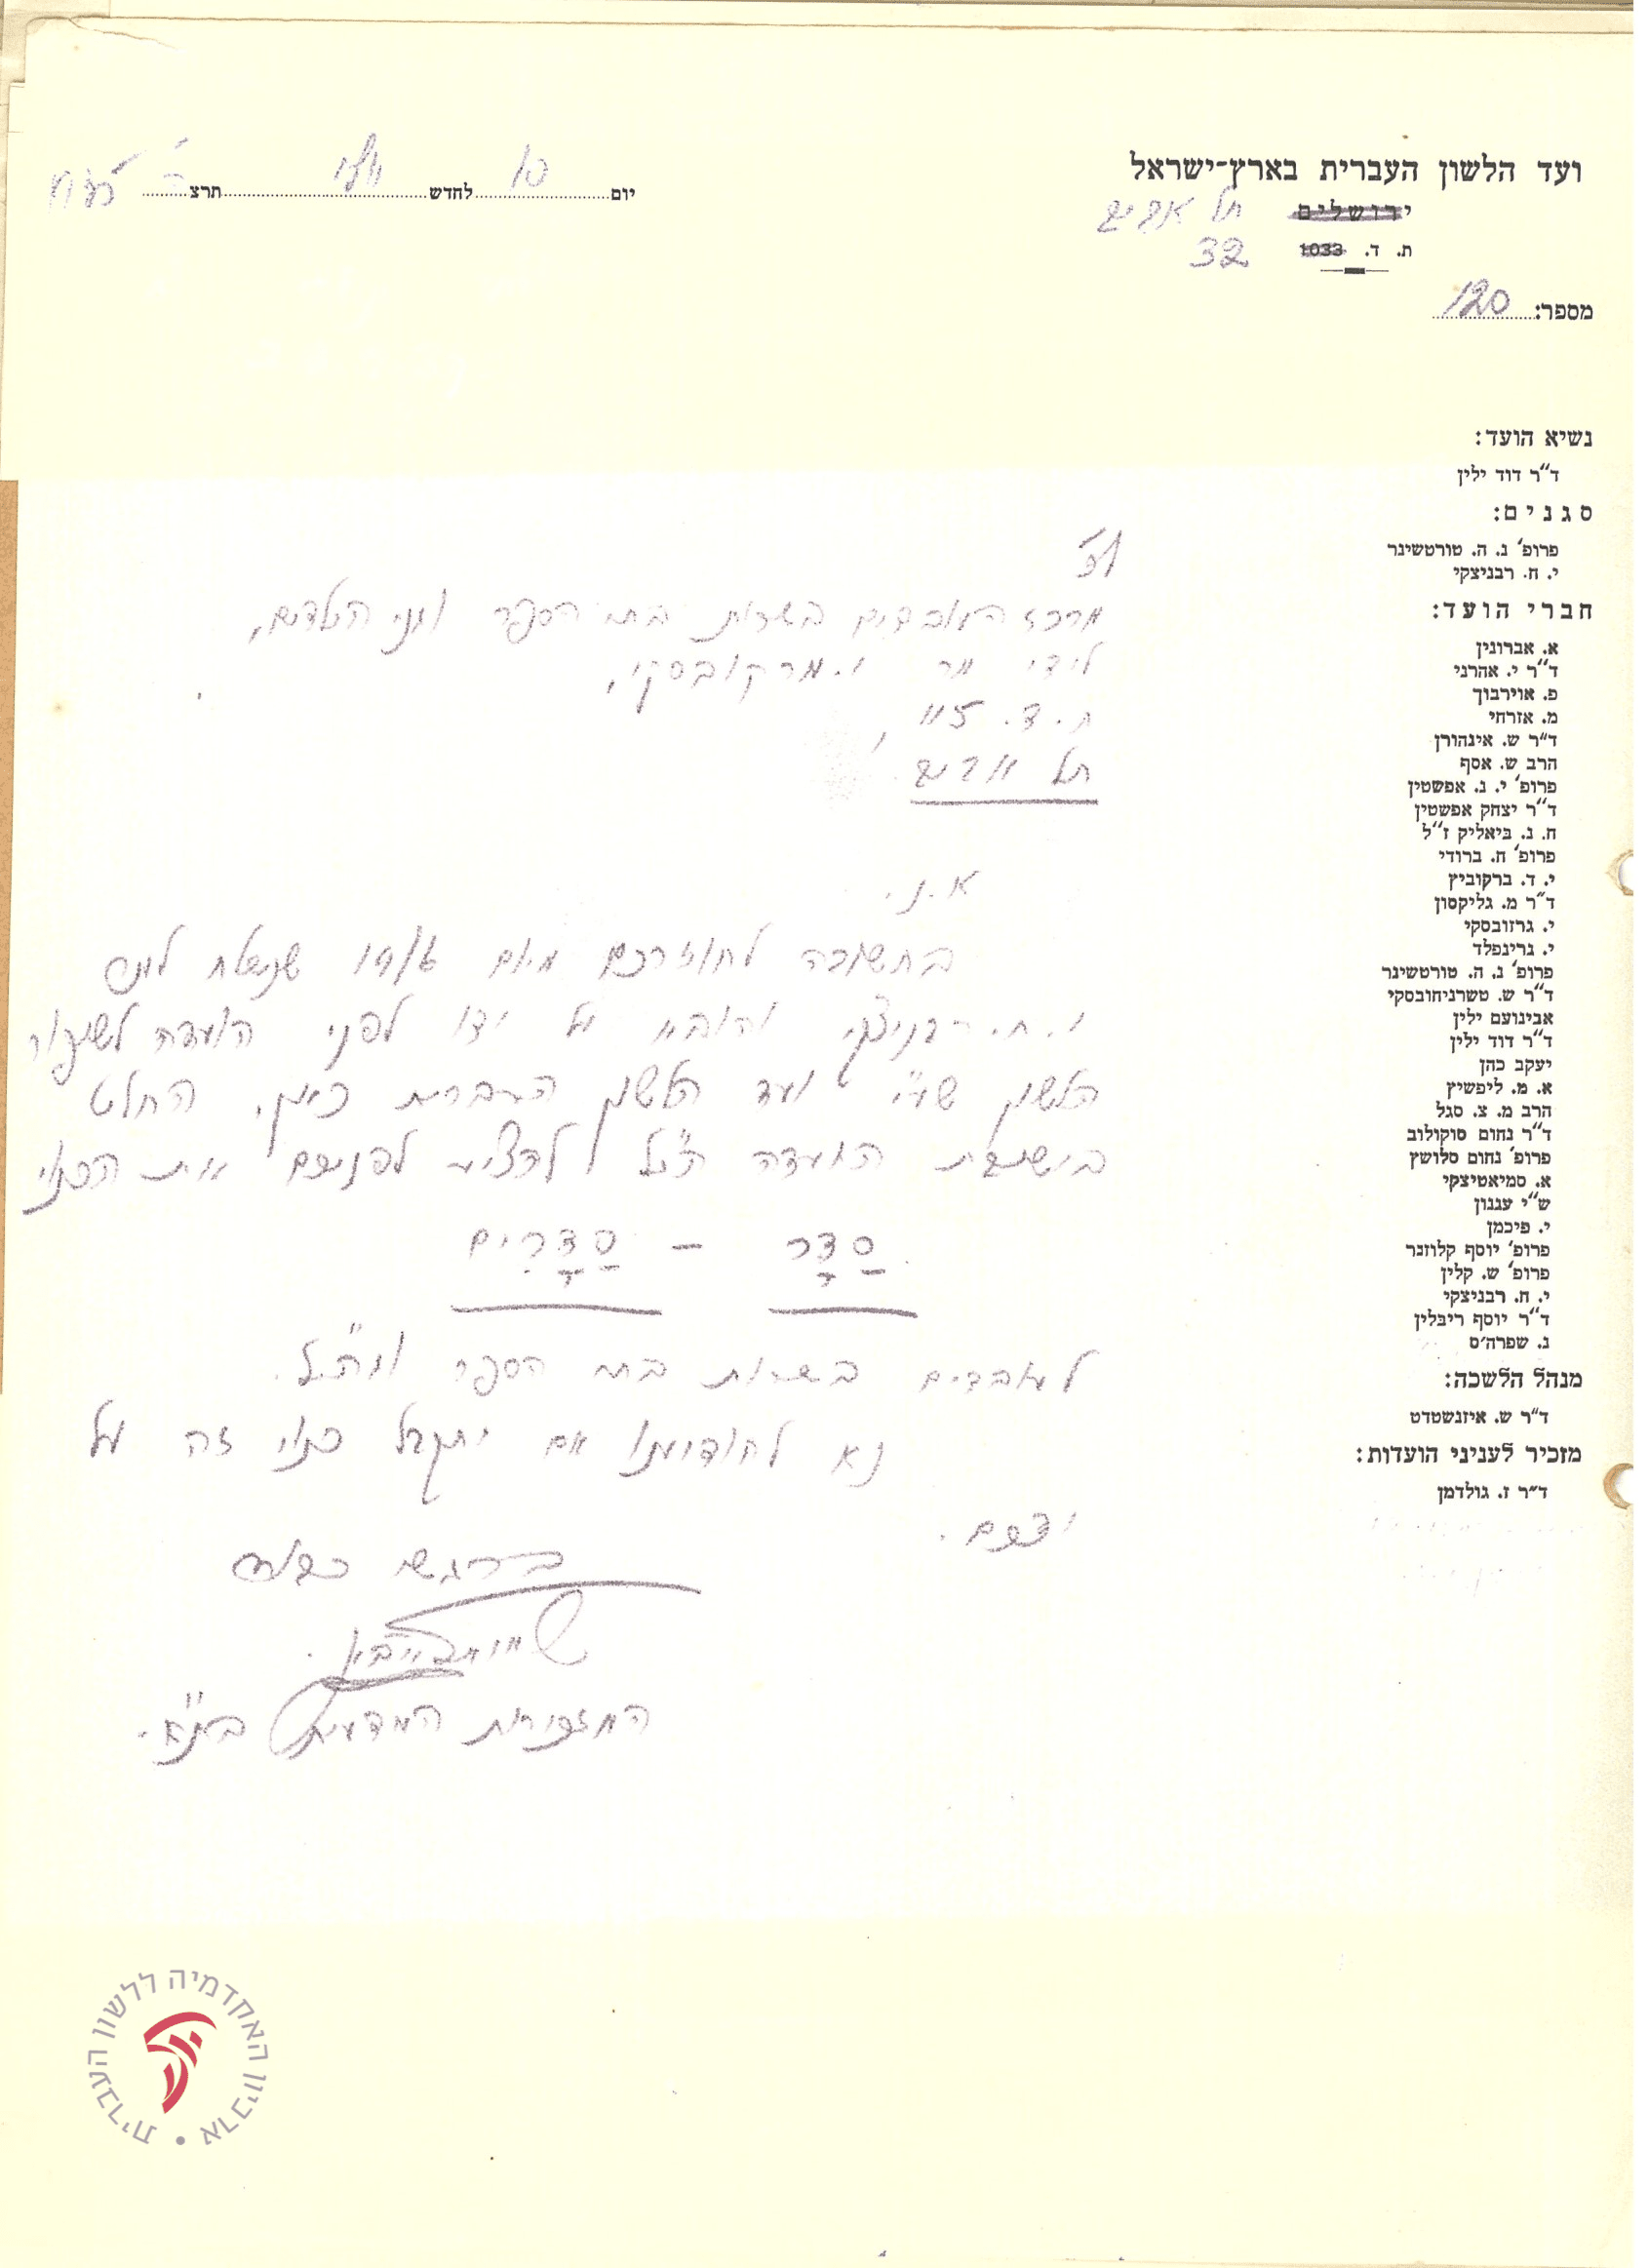 ועד הלשון העברית בארץ־ישראל
ירושלים תל אביב
ת. ד. 1033 32
מספר: 120
יום לחדש תרצ
נשיא הועד:
ד"ר דוד ילין
סגנים:
פרופ' נ. ה. טורטשינר
י. ח. רבניצקי
חברי הועד:
א. אברונין
ד"ר י. אהרני
פ. אוירבוך
מ. אזרחי
ד"ר ש. אינהורן
הרב ש. אסף
פרופ' י. נ. אפשטין
ד"ר יצחק אפשטין
ח. נ. ביאליק ז"ל
פרופ' ח. ברודי
י. ד. ברקוביץ
ד"ר מ. גליקסון
י. גרזובסקי
י. גרינפלד
פרופ' נ. ה. טורטשינר
ד"ר ש. טשרניחובסקי
אבינועם ילין
ד"ר דוד ילין
יעקב כהן
א. מ. ליפשיץ
הרב מ. צ. סגל
ד"ר נחום סוקולוב
פרופ' נחום סלושץ
א. סמיאטיצקי
ש"י עגנון
י. פיכמן
פרופ' יוסף קלוזנר
פרופ' ש. קלין
י. ח. רבניצקי
ד"ר יוסף ריבלין
נ. שפרה'ס
מנהל הלשכה:
ד"ר ש. איזנשטדט
מזכיר לעניני הועדות:
ד"ר ז. גולדמן
לכ'
מרכז העובדים בשרות בתי הספר וגני הילדים,
לידי מר י. מרקובסקי,
ת. ד. 115,
תל אביב
א. נ.
בתשובה לחוזרכם מיום שנשלח
י. ח. רבניצקי והובא על ידו לפני הועדה לשפור
הלשון שע"י ועד הלשון העברית כאן, החלט
בישיבת הועדה הנ"ל להציע לפניכם את הכנוי
סַדָּר – סַדָּרִים
לעובדים בשרות בתי הספר
נא להודיענו אם יתקבל כנוי זה על
ידכם.
ברגשי כבוד
המזכירות המדעית בת"א.
ארכיון האקדמיה ללשון העברית